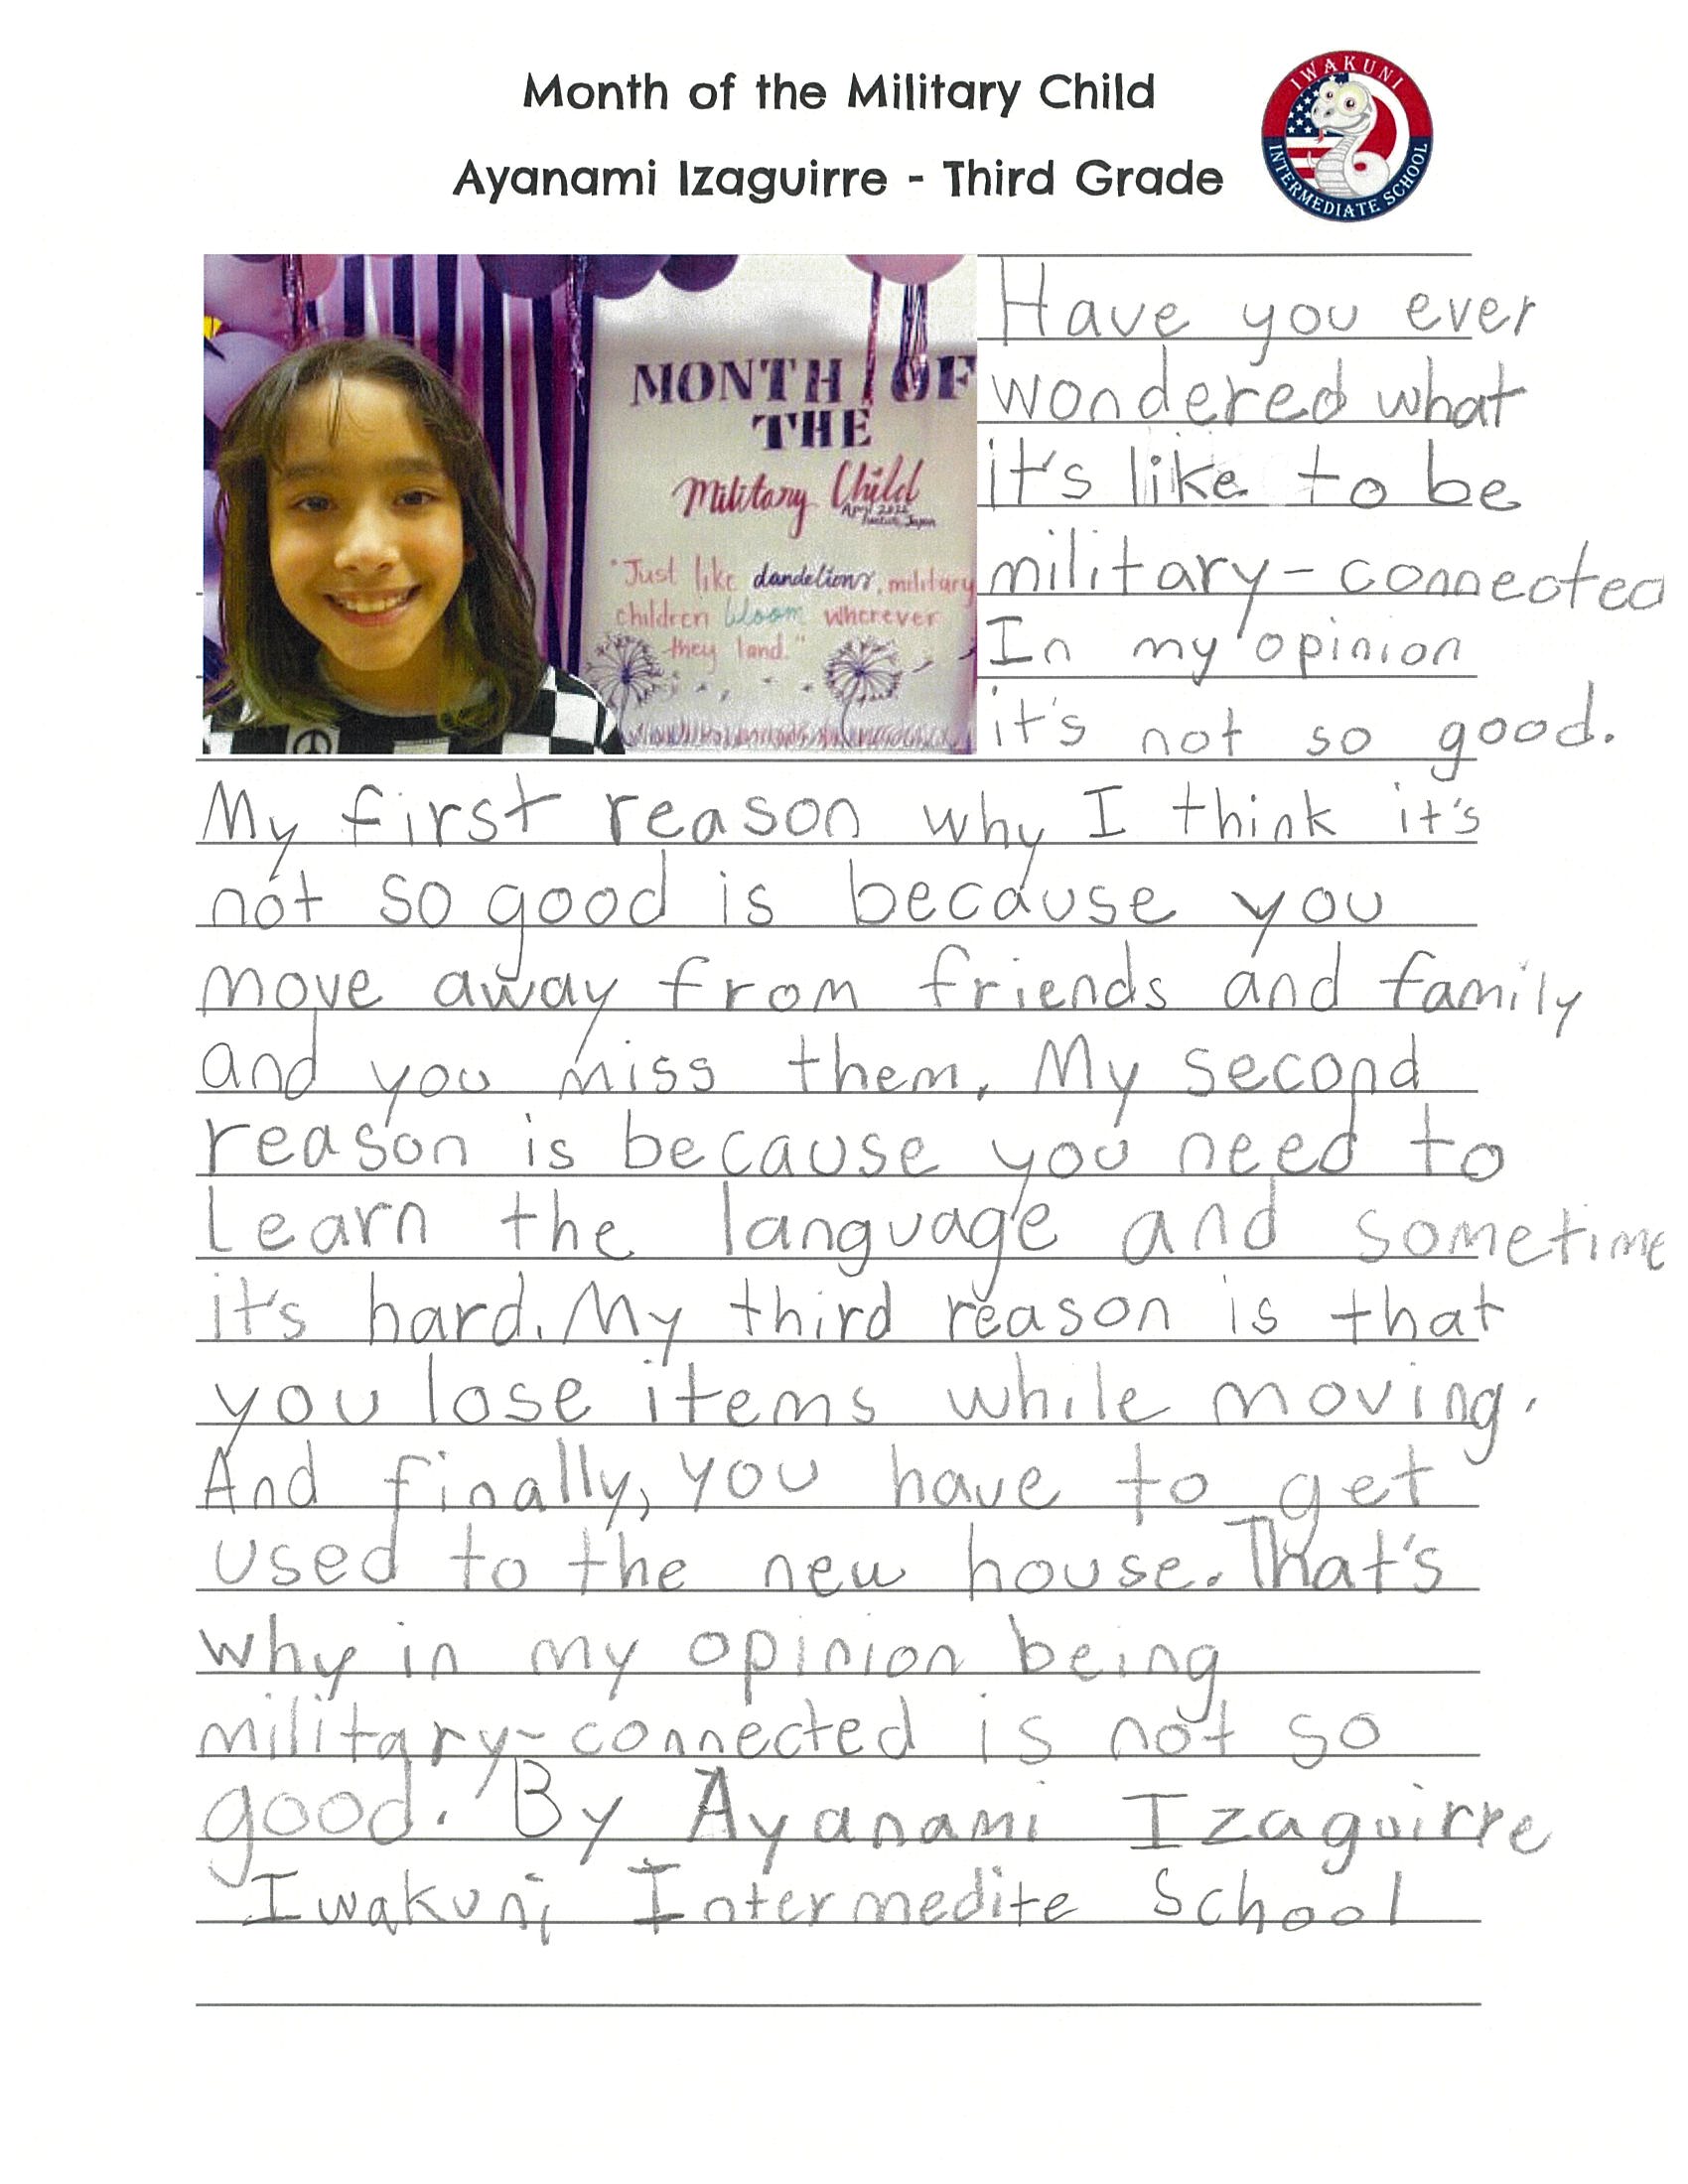 Month of the Military Child
Ayanami Izaguirre - Third Grade
IWAKUNI
INTERMEDIATE SCHOOL
MONTH OF
THE
Military Child
April 2022
Japan
"Just like dandelions, military
children bloom wherever
they land."
Have you ever
wondered what
it's like to be
military-connected
In my opinion
it's not so good.
My first reason why I think it's
not so good is because you
move away from friends and family
and you miss them. My second
reason is because you need to
Learn the language and sometime
it's hard. My third reason is that
you lose items while moving.
And finally, you have to get
used to the new house. That's
why in my opinion being
military-connected is not so
good. By Ayanami Izaguirre
Iwakuni Intermedite School